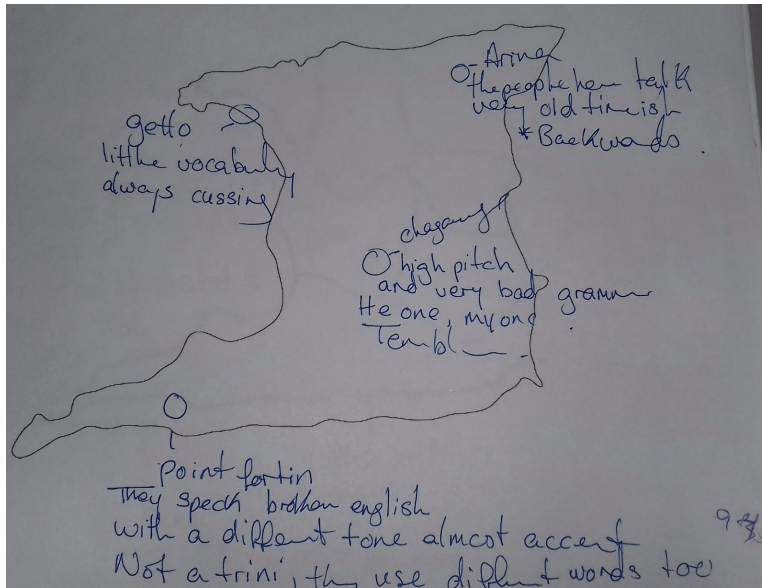 O- Arima
the people here talk
very old timeish
* Backwards.
getto
little vocabulry
always cussing
O high pitch
and very bad gramm
He one, my one
Point fortin
They speak broken english
with a different tone almost accent
Not a trini, they use diffent words too